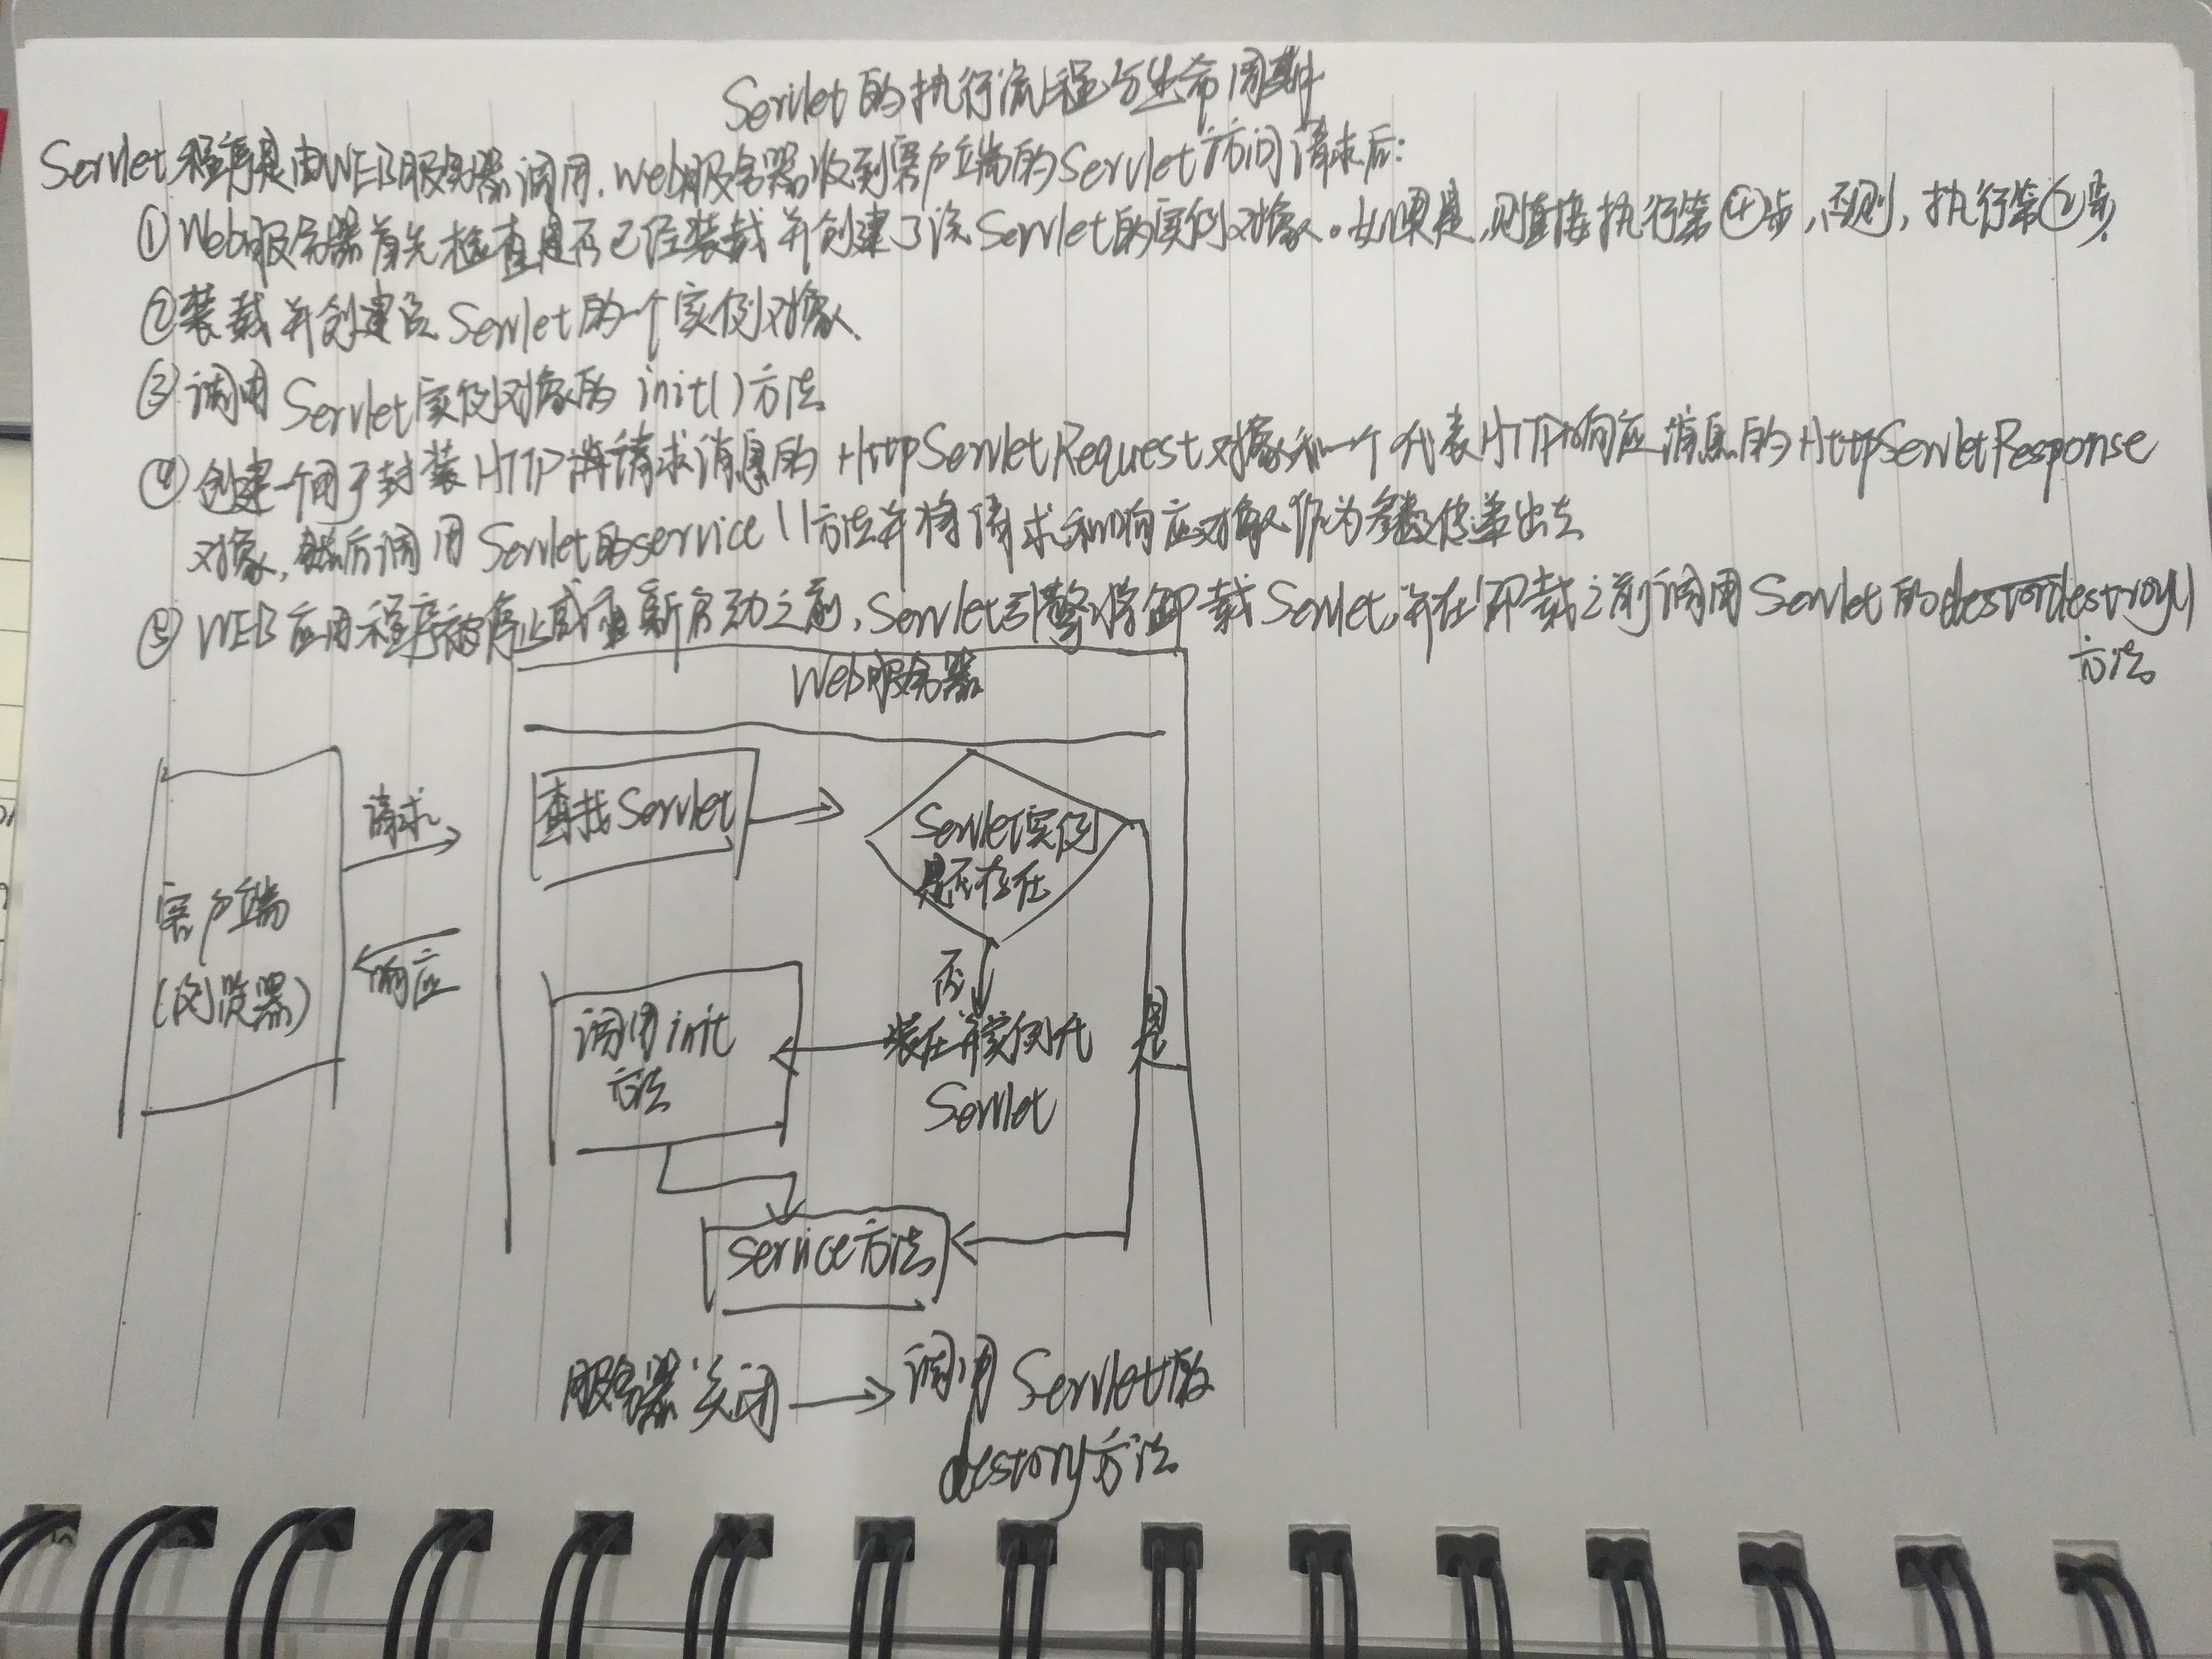 Servlet的执行流程与生命周期
Servlet程序是由WEB服务器调用.Web服务器收到客户端的Servlet访问请求后:
①Web服务器首先检查是否已经装载并创建了该Servlet的实例对象。如果是,则直接执行第④步,否则,执行第②步.
②装载并创建该Servlet的一个实例对象.
③调用Servlet实例对象的init()方法
④创建一个用于封装HTTP请求消息的HttpServletRequest对象和一个代表HTTP响应消息的HttpServletResponse
对象,然后调用Servlet的service()方法并将请求和响应对象作为参数传递出去
⑤WEB应用程序被停止或重新启动之前,Servlet引擎将卸载Servlet,并在卸载之前调用Servlet的destroy()
方法
Web服务器
查找Servlet
Servlet实例
是否存在
请求
客户端
(浏览器)
响应
否
是
调用init
方法
装在并实例化
Servlet
service方法
服务器关闭
调用Servlet的
destory方法